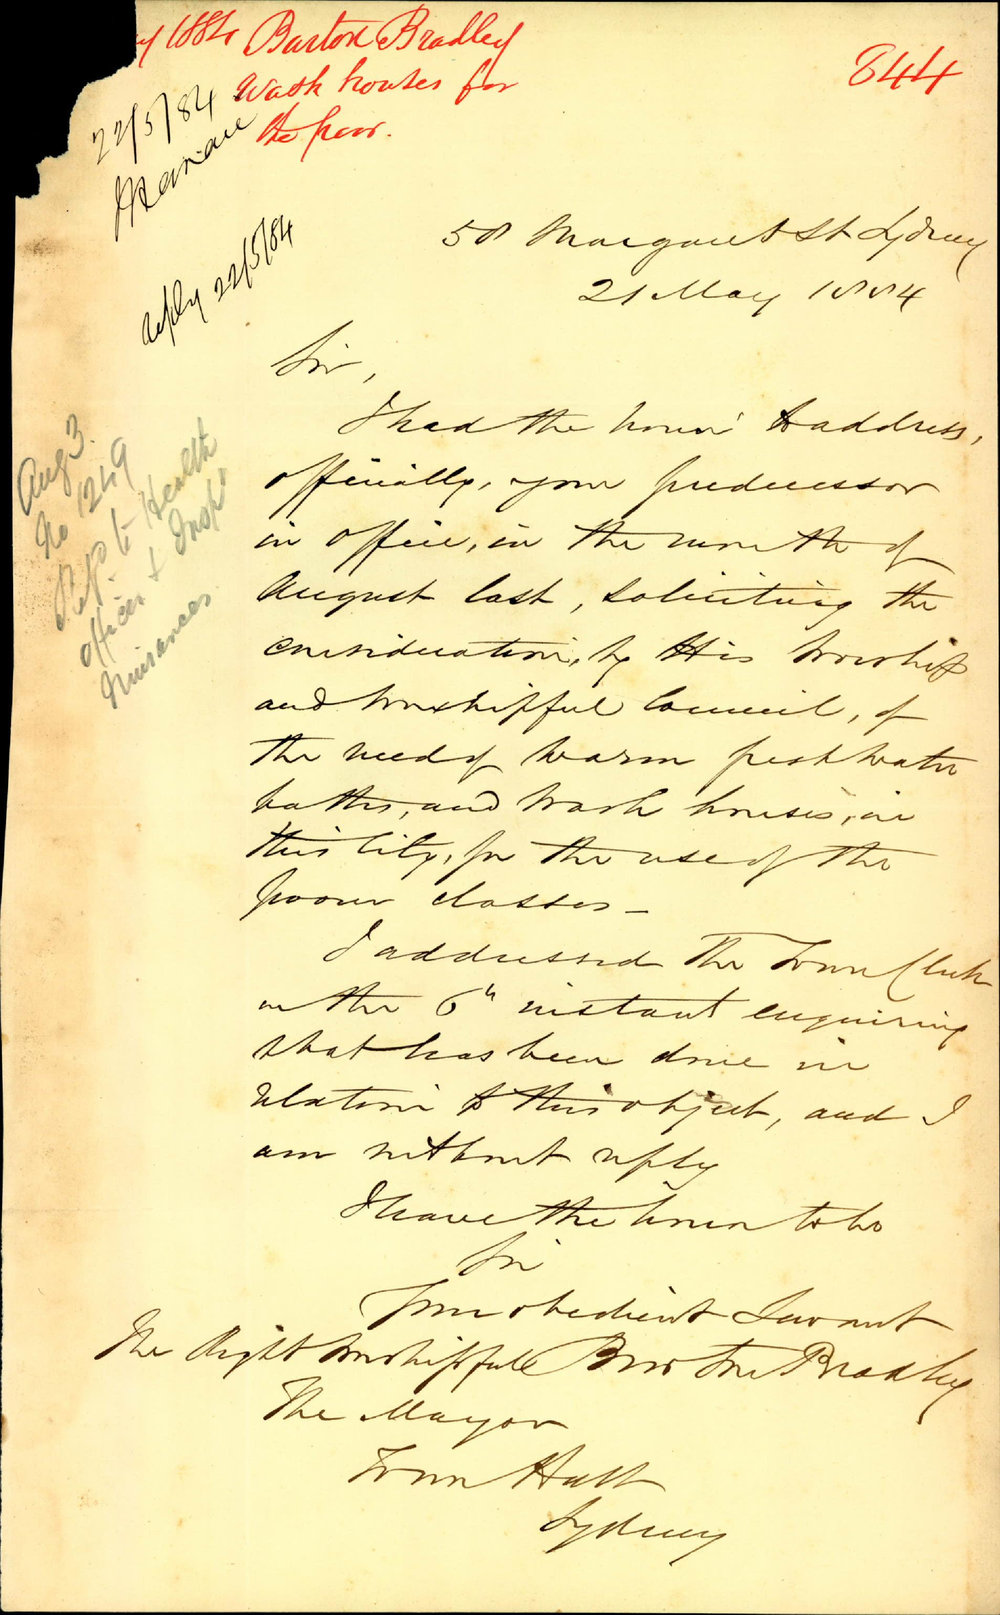 y 1884 Burton Bradley
844
Wash houses for
the poor.
22/5/84
reply 22/5/84
Aug 3.
No 1249
Refd to Health
officer & Inspr
Nuisances
58 Margaret St Sydney
21 May 1884
Sir,
I had the honor to address,
officially, your predecessor
in office, in the month of
August last, soliciting the
consideration, by His Worship
and Worshipful Council, of
the need of warm fresh water
baths, and wash houses, in
this City, for the use of the
poorer classes -
I addressed the Town Clerk
on the 6th instant enquiring
what has been done in
relation to this object, and I
am without reply
I have the honor to be
Sir
Your obedient Servant
Burton Bradley
The Right Worshipful
The Mayor
Town Hall
Sydney